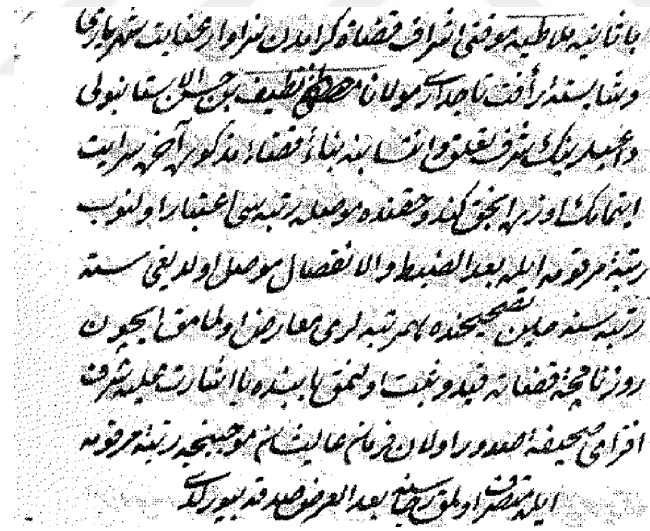 باثانیه ملاطیه موقتی اشراف قضاة کرامدن سزاوار عنایت شهریاری
وشایسته رأفت تاجداری مولانا نظیف بن حسن الاستانبولی
داعیلرینك شرف تعلق وانتسابنه بناءً قضاء مذکور آخره سرایت
ایتمامك اوزره انجق کندو حقنده موصله رتبه سی اعتبار اولنوب
رتبۀ مرقومه ایله بعد الضبط والانفصال موصل اولدیغی سته
رتبه سنه حین تصحیحنده همرتبه لری معارض اولمامق ایچون
روزنامچۀ قضاته قید و ثبت اولنمق بابنده بااشارت علیه شرف
افزای صحیفه اصدور اولان فرمان عالیشان موجبنجه رتبۀ مرقومه
ایله متصرف اولمق بعد العرض صدقه بیورلدی